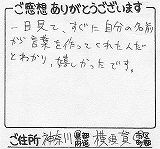 ご感想ありがとうございます
一目見て、すぐに自分の名前
が言葉を作ってくれたんだ
とわかり、嬉しかったです。
ご住所 神奈川 都道府県 横須賀 市区町村